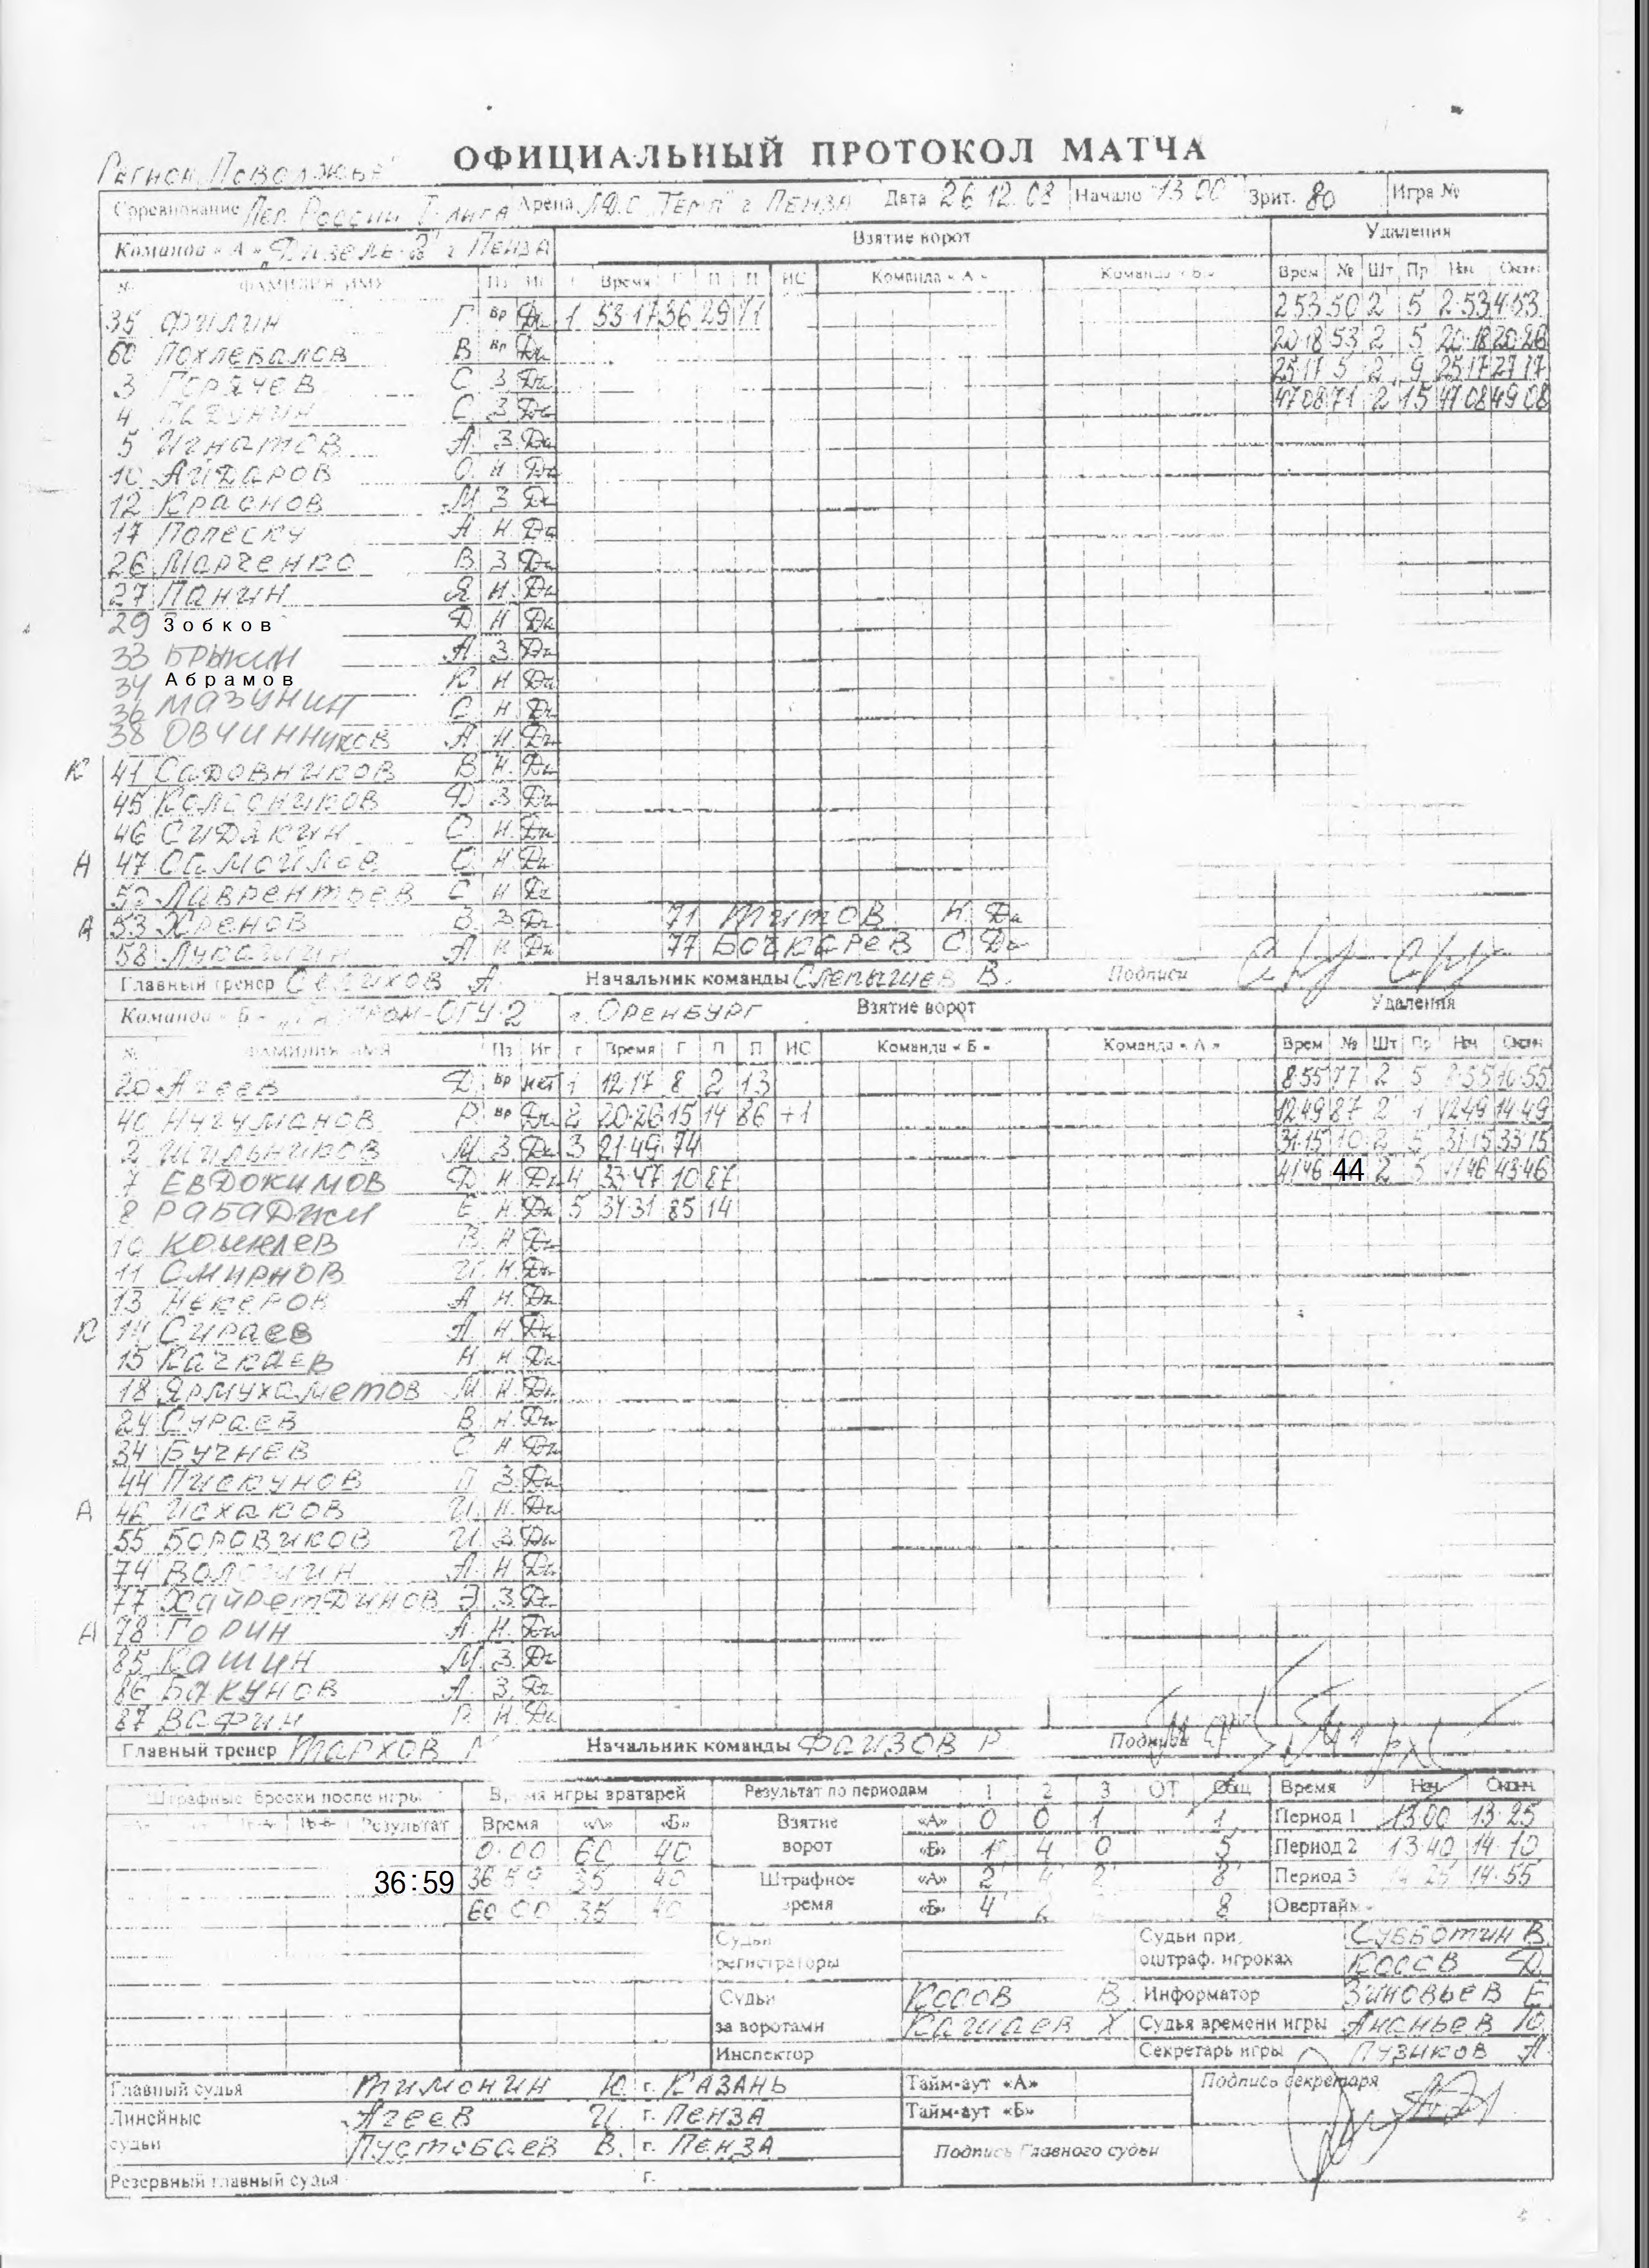 ОФИЦИАЛЬНЫЙ ПРОТОКОЛ МАТЧА
Регион Поволжье
Соревнование Пер. России I лига Арена ЛДС "Темп" г. Пенза Дата 26.12.08 Начало 13 00 Зрит. 80 Игра №
Команда «А» "Дизель-2" г Пенза Взятие ворот Удаления
№ ФАМИЛИЯ ИМЯ Пз Иг г Время Г П П ИС Команда «А» Команда «Б» Врем № Шт Пр Нач Оконч
35 Филин Г. Вр Да 1 53 17 36 29 71 2 53 50 2 5 2 53 4 53
60 Похлебалов В Вр Да 20 18 53 2 5 20 18 20 26
3 Горячев С З Да 25 17 5 2 9 25 17 27 17
4 С З Да 47 08 71 2 15 47 08 49 08
5 Игнатов А. З. Да
10 Айдаров О. Н Да
12 Краснов М З Да
17 Попеску А Н Да
26 Марченко В З Да
27 Панин Я Н. Да
29 Зобков Д Н Да
33 Брыкин А З. Да
34 Абрамов К. Н Да
36 Мазунин С Н Да
38 Овчинников А Н. Да
К 41 Садовников В Н. Да
45 Колесников Д З Да
46 Сидякин С Н. Да
А 47 Самойлов О Н Да
52 Лаврентьев С Н Да
А 53 Хренов В. З Да 71 Титов К. Да
58 Лукашин А Н Да 77 Бочкарев С Да
Главный тренер Селихов А. Начальник команды Слепышев В. Подписи
Команда «Б» "Газпром-ОГУ-2 г. Оренбург Взятие ворот Удаления
№ ФАМИЛИЯ ИМЯ Пз Иг г Время Г П П ИС Команда «Б» Команда «А» Врем № Шт Пр Нач Оконч
20 Агеев Д. Вр нет 1 12 17 8 2 13 8 55 77 2 5 8 55 10 55
40 Нугуманов Р. Вр Да 2 20 26 15 14 86 +1 12 49 87 2 1 12 49 14 49
2 Шильников М З. Да 3 21 49 74 31 15 10 2 5 31 15 33 15
7 Евдокимов Д Н Да 4 33 47 10 87 41 46 44 2 5 41 46 43 46
8 Рабаджи Е Н. Да 5 34 31 85 14
10 Кошелев В. Н Да
11 Смирнов И. Н. Да
13 Некеров А Н. Да
К 14 Сираев А Н. Да
15 Качкаев Н Н Да
18 Ярмухаметов М Н. Да
24 Сураев В. Н. Да
34 Бучнев С Н Да
44 Пискунов П З. Да
А 46 Исхаков И. Н. Да
55 Боровиков И. З. Да
74 Волошин А. Н Да
77 Хайретдинов Э З. Да
А 78 Горин А. Н. Да
85 Кашин М. З. Да
86 Бакунов А. З. Да
87 Вафин Р. Н. Да
Главный тренер Тархов Начальник команды Фаизов Р. Подписи
Штрафные броски после игры Время игры вратарей Результат по периодам 1 2 3 ОТ Общ Время Нач Оконч
Результат Время «А» «Б» Взятие «А» 0 0 1 1 Период 1 13 00 13 25
0 00 60 40 ворот «Б» 1 4 0 5 Период 2 13 40 14 10
36:59 36 59 35 40 Штрафное «А» 2 4 2 8 Период 3 14 25 14 55
60 00 35 40 время «Б» 4 2 8 Овертайм
Судьи Судьи при Субботин В.
регистраторы оштраф. игроках Косов Д
Судьи Косов В Информатор Зиновьев Е
за воротами Кашаев Х Судья времени игры Ананьев Ю.
Инспектор Секретарь игры Пузиков А
Главный судья Тимонин Ю. г. Казань Тайм-аут «А» Подпись секретаря
Линейные Агеев И. г. Пенза Тайм-аут «Б»
судьи Пустобаев В. г. Пенза Подпись Главного судьи
Резервный главный судья г.